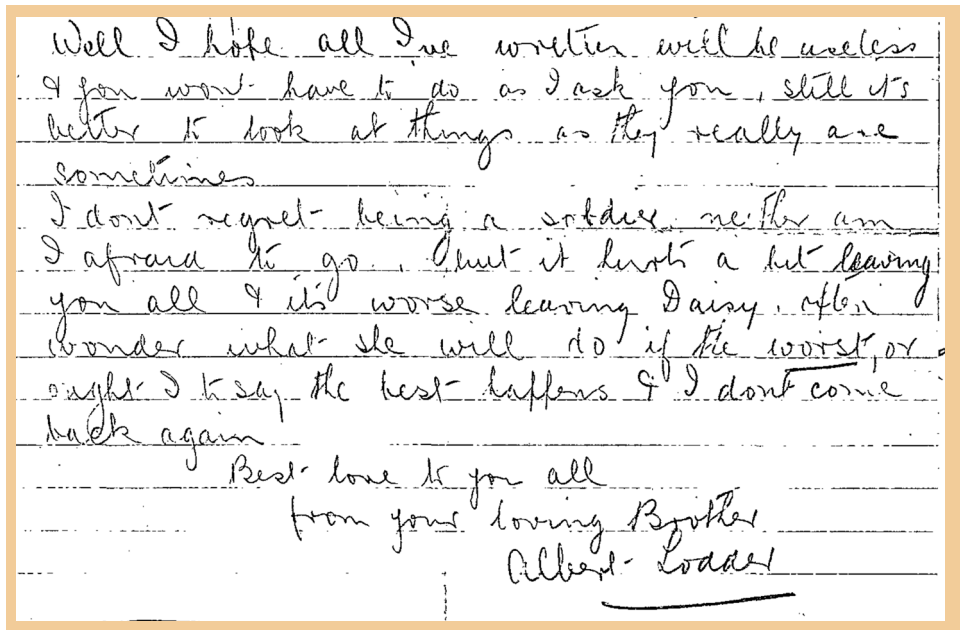 Well I hope all I've written will be useless
& you wont have to do as I ask you, still it's
better to look at things as they really are
sometimes
I dont regret being a soldier, neither am
I afraid to go, but it hurts a bit leaving
you all & it's worse leaving Daisy. often
wonder what she will do if the worst, or
ought I to say the best happens & I dont come
back again
Best love to you all
from your loving Brother
Albert Lodder